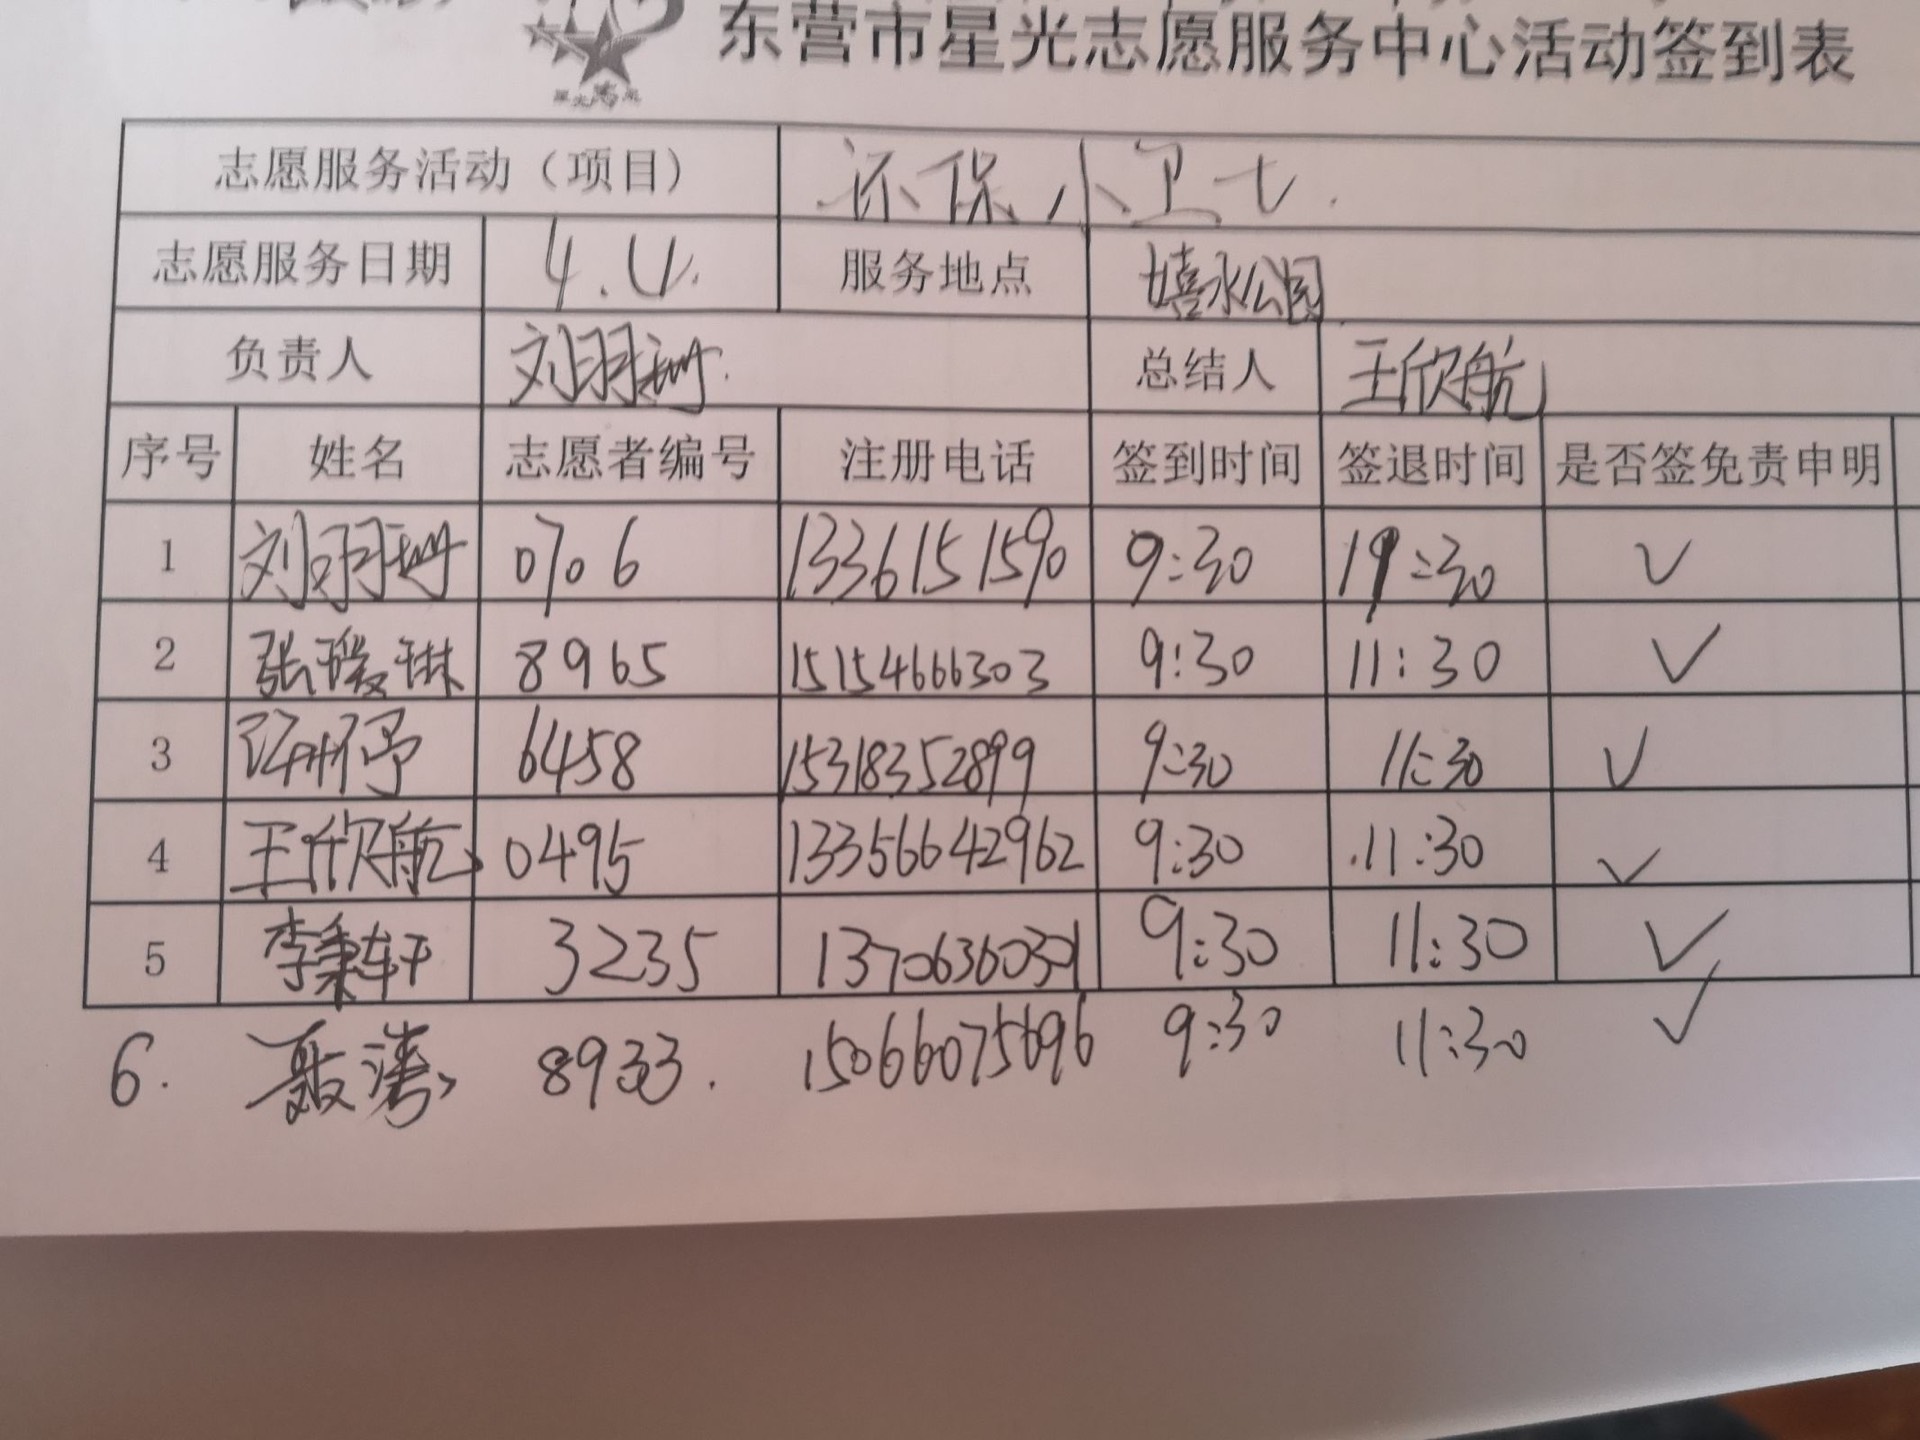 东营市星光志愿服务中心活动签到表
志愿服务活动（项目） 环保小卫士.
志愿服务日期 4. 服务地点 嬉水公园
负责人 刘羽珊. 总结人 王欣航
序号 姓名 志愿者编号 注册电话 签到时间 签退时间 是否签免责申明
1 刘羽珊 0706 13361515190 9:30 19:30 ✓
2 张瑷琳 8965 15154666303 9:30 11:30 ✓
3 6458 15318352899 9:30 11:30 ✓
4 王欣航 0495 13356642962 9:30 11:30 ✓
5 李秉轩 3235 9:30 11:30 ✓
6. 聂涛 8933. 15066075696 9:30 11:30 ✓